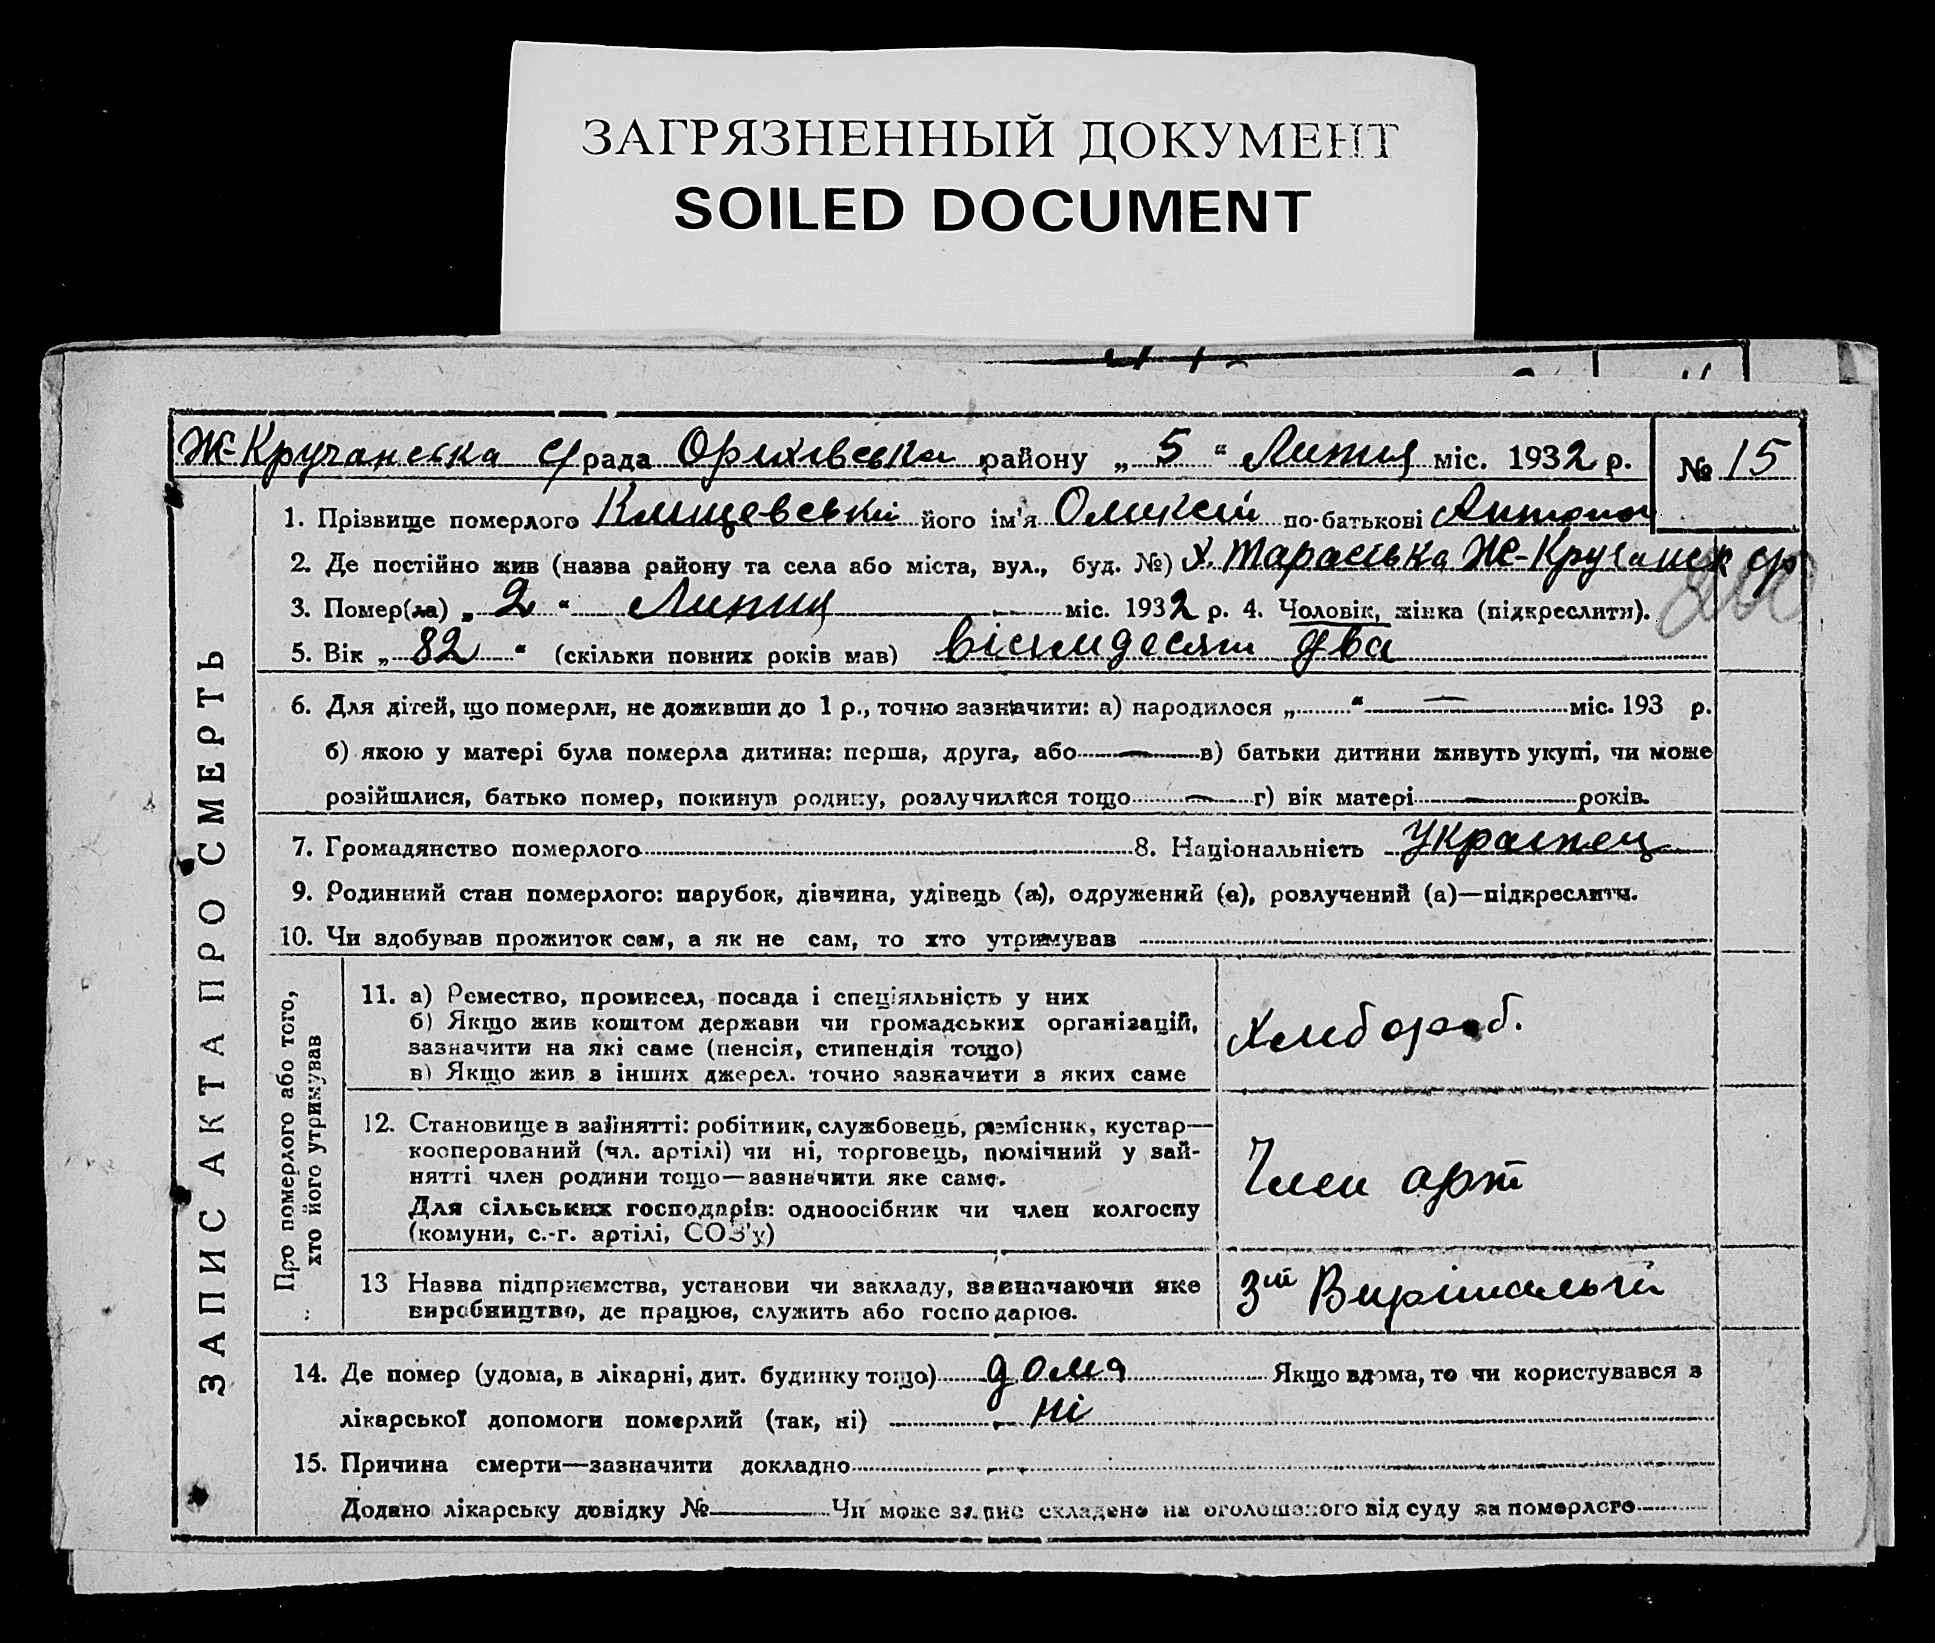 ЗАГРЯЗНЕННЫЙ ДОКУМЕНТ
SOILED DOCUMENT
Ж-Кручанська с/рада Оріхівська району „ 5 “ Липня міс. 1932 р. № 15
1. Прізвище померлого Клищевські його ім'я Оликсій по-батькові Антонов
2. Де постійно жив (назва району та села або міста, вул., буд. №) х. Тарасівка Ж-Кручанск ср
3. Помер(ла) „ 2 “ Липня міс. 1932 р. 4. Чоловік, жінка (підкреслити).
5. Вік „ 82 “ (скільки повних років мав) вісімдесят два
6. Для дітей, що померли, не доживши до 1 р., точно зазначити: а) народилося „ “ — міс. 193 р.
б) якою у матері була померла дитина: перша, друга, або — в) батьки дитини живуть укупі, чи може
розійшлися, батько помер, покинув родину, розлучилися тощо — г) вік матері — років.
7. Громадянство померлого 8. Національність Украінец
9. Родинний стан померлого: парубок, дівчина, удівець (а), одружений (а), розлучений (а)—підкреслити.
10. Чи здобував прожиток сам, а як не сам, то хто утримував
ЗАПИС АКТА ПРО СМЕРТЬ
Про померлого або того,
хто його утримував
11. а) Ремество, промисел, посада і спеціяльність у них
б) Якщо жив коштом держави чи громадських організацій,
зазначити на які саме (пенсія, стипендія тощо)
в) Якщо жив з інших джерел. точно зазначити з яких саме
Хлибороб.
12. Становище в зайнятті: робітник, службовець, ремісник, кустар—
кооперований (чл. артілі) чи ні, торговець, помічний у зай-
нятті член родини тощо—зазначити яке саме.
Для сільських господарів: одноосібник чи член колгоспу
(комуни, с.-г. артілі, СОЗ'у)
Член арт
13 Назва підприємства, установи чи закладу, зазначаючи яке
виробництво, де працює, служить або господарює.
3ій Вирішальній
14. Де помер (удома, в лікарні, дит. будинку тощо) дома Якщо вдома, то чи користувався з
лікарської допомоги померлий (так, ні) ні
15. Причина смерти—зазначити докладно
Додано лікарську довідку № Чи може запис складено на оголошеного від суду за померлого